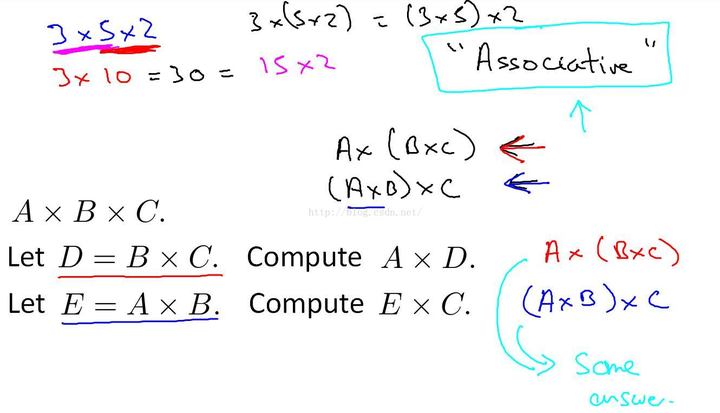 3 × 5 × 2
3 × (5 × 2) = (3 × 5) × 2
3 × 10 = 30 = 15 × 2
"Associative"
A × (B × C)
(A × B) × C
http://blog.csdn.net/
A × B × C.
Let D = B × C. Compute A × D.
A × (B × C)
Let E = A × B. Compute E × C.
(A × B) × C
Same
answer.